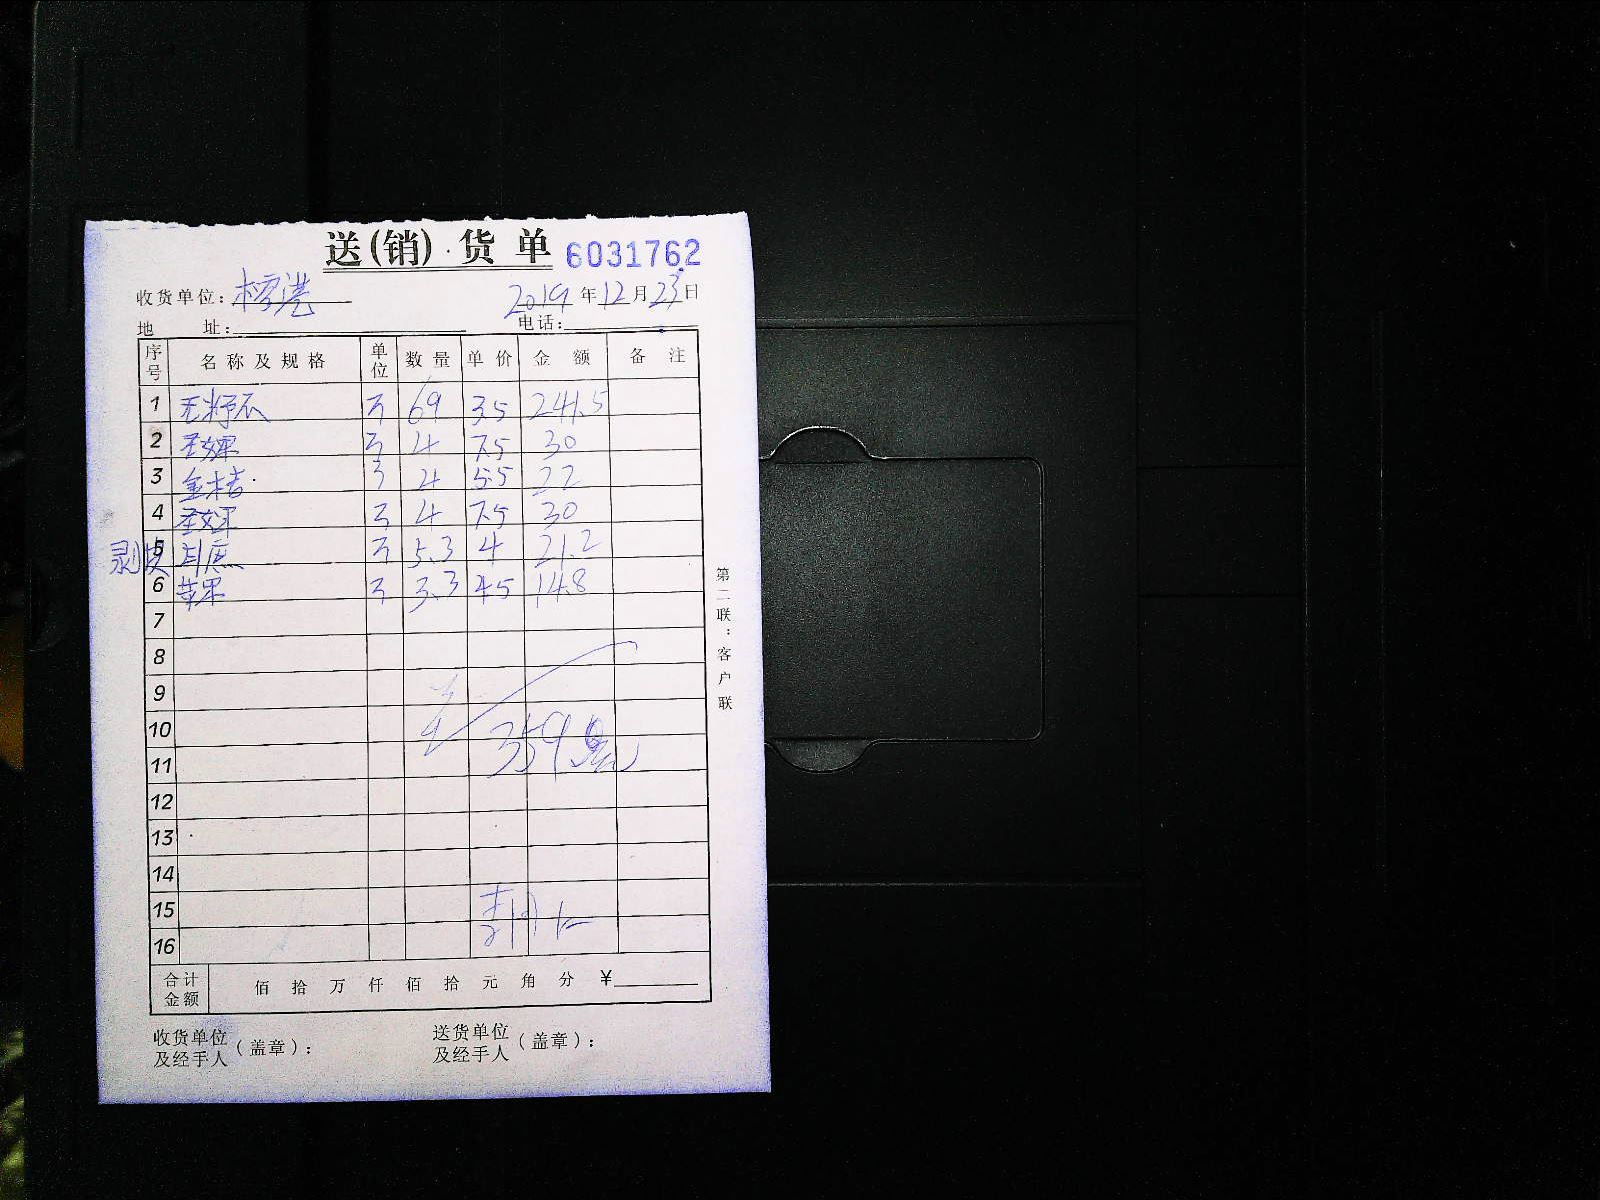 送(销)·货单 6031762
收货单位: 2019年12月23日
地 址: 电话:
序号 名称及规格 单位 数量 单价 金额 备注
1 69 3.5 241.5
2 圣女果 4 7.5 30
3 金桔 4 5.5 22
4 圣女果 4 7.5 30
5 剥皮甘蔗 5.3 4 21.2
6 苹果 3.3 4.5 14.8
7
8
9
10 359
11
12
13
14
15
16
合计金额 佰 拾 万 仟 佰 拾 元 角 分 ¥
收货单位及经手人(盖章): 送货单位及经手人(盖章):
第二联:客户联